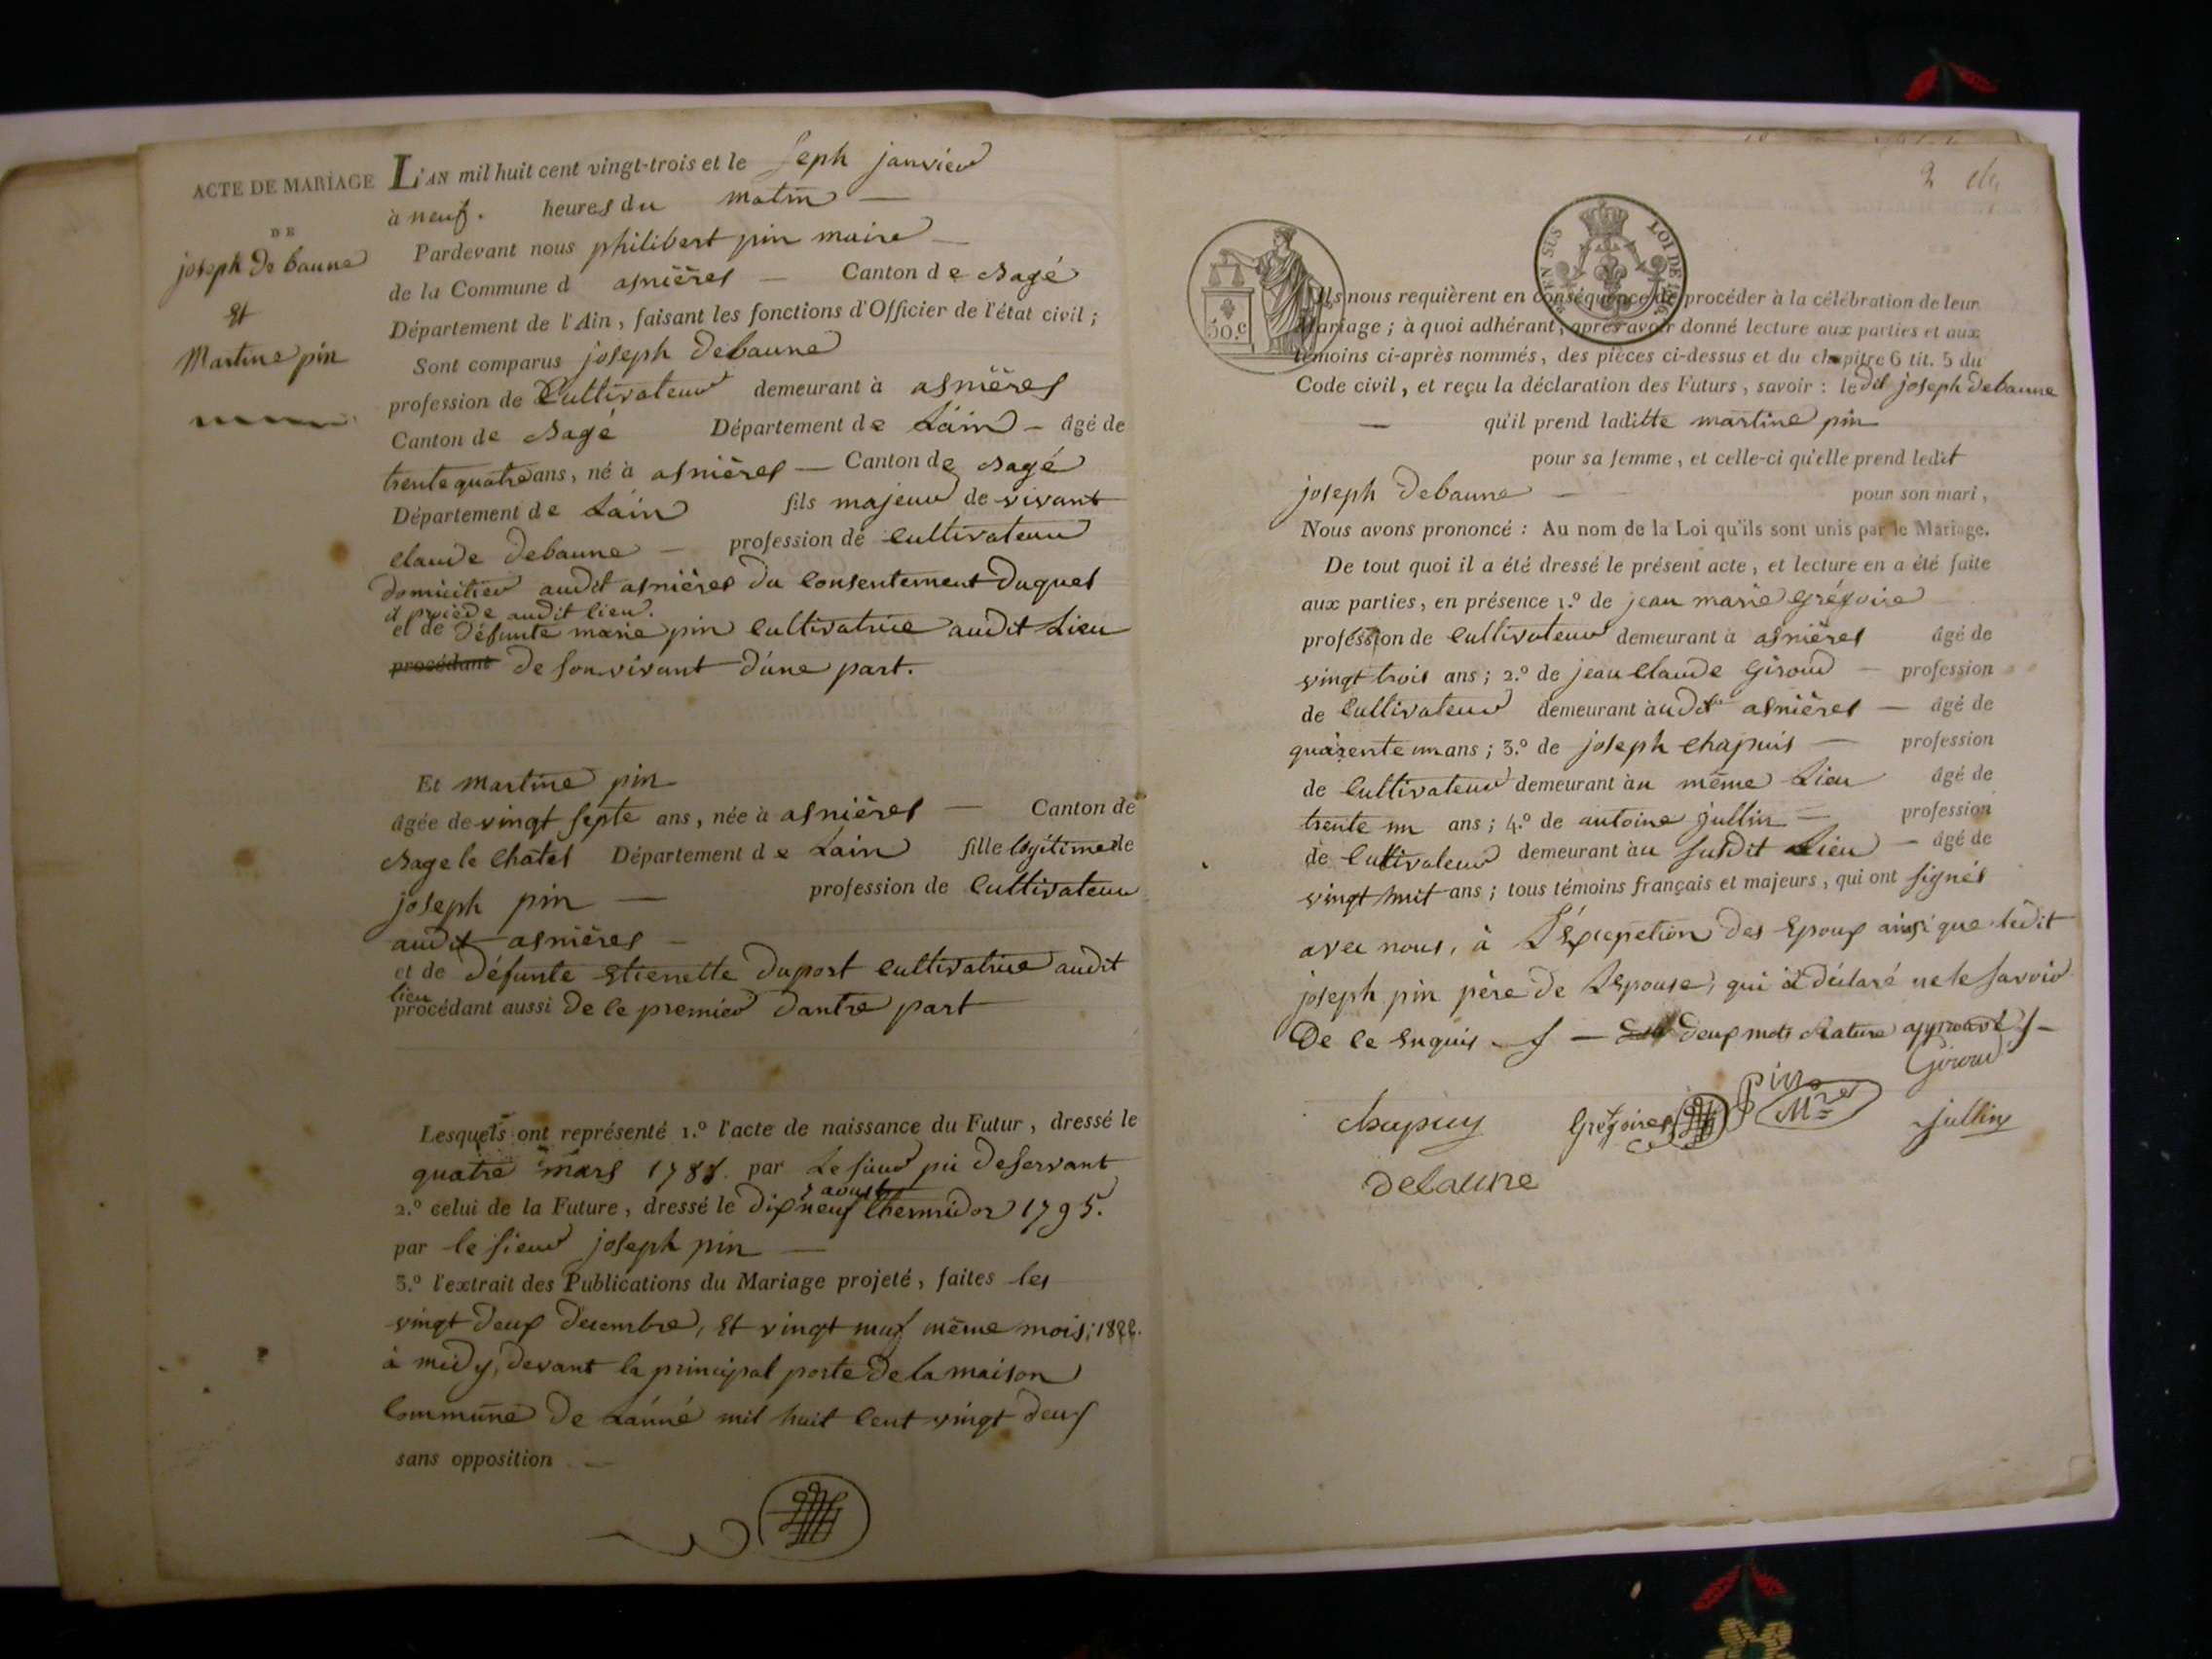 ACTE DE MARIAGE
DE
joseph Debaune
Et
Martine pin
L'AN mil huit cent vingt-trois et le Seph janvier
à neuf. heures du matin —
Pardevant nous philibert pin maire —
de la Commune d asnières — Canton de Bagé
Département de l'Ain, faisant les fonctions d'Officier de l'état civil;
Sont comparus joseph Debaune
profession de Cultivateur demeurant à asnières
Canton de Bagé Département de Lain – âgé de
trente quatre ans, né à asnières — Canton de Bagé
Département de Lain fils majeur de vivant
claude Debaune — profession de cultivateur
Domicilier audit asnières Du Consentement Duquel
il procède audit lieu.
et de Défunte marie pin Cultivatrice audit Lieu
procédant De son vivant D'une part.
Et martine pin
âgée de vingt septe ans, née à asnières — Canton de
Bage le Chatel Département de Lain fille légitime de
joseph pin — profession de Cultivateur
audit asnières —
et de Défunte Etienette Duport Cultivatrice audit
lieu
procédant aussi De le premier Dautre part
Lesquels ont représenté 1.º l'acte de naissance du Futur, dressé le
quatre mars 1788. par Le sieur pii Deservant
7 aoust
2.º celui de la Future, dressé le Dix neuf thermidor 1795.
par le sieur joseph pin —
3.º l'extrait des Publications du Mariage projeté, faites les
vingt Deux Decembre, Et vingt neuf même mois; 1822.
à midy, Devant la principal porte De la maison
Commune De Lánné mil huit Cent vingt Deux
sans opposition —
2
50.C
EN SUS
LOI DE
Ils nous requièrent en conséquence de procéder à la célébration de leur
Mariage; à quoi adhérant, après avoir donné lecture aux parties et aux
témoins ci-après nommés, des pièces ci-dessus et du chapitre 6 tit. 5 du
Code civil, et reçu la déclaration des Futurs, savoir: ledit joseph Debaune
— qu'il prend laditte martine pin
pour sa femme, et celle-ci qu'elle prend ledit
joseph Debaune — pour son mari,
Nous avons prononcé: Au nom de la Loi qu'ils sont unis par le Mariage.
De tout quoi il a été dressé le présent acte, et lecture en a été faite
aux parties, en présence 1.º de jean marie grégoire
profession de Cultivateur demeurant à asnières âgé de
vingt trois ans; 2.º de jean Claude Giroud — profession
de Cultivateur demeurant audit asnières — âgé de
quarente un ans; 3.º de joseph Chapuis — profession
de Cultivateur demeurant au même Lieu âgé de
trente un ans; 4.º de antoine jullin — profession
de Cultivateur demeurant au susdit Lieu — âgé de
vingt huit ans; tous témoins français et majeurs, qui ont signés
avec nous, à L'Excepetion Des Epoux ainsi que ledit
joseph pin père De Lepouse, qui a Déclaré ne le savoir
De ce Enquis — Deux mots Rature approuvé
Giroud
Pin
Mre
chapuy Grégoire jullin
Debaune